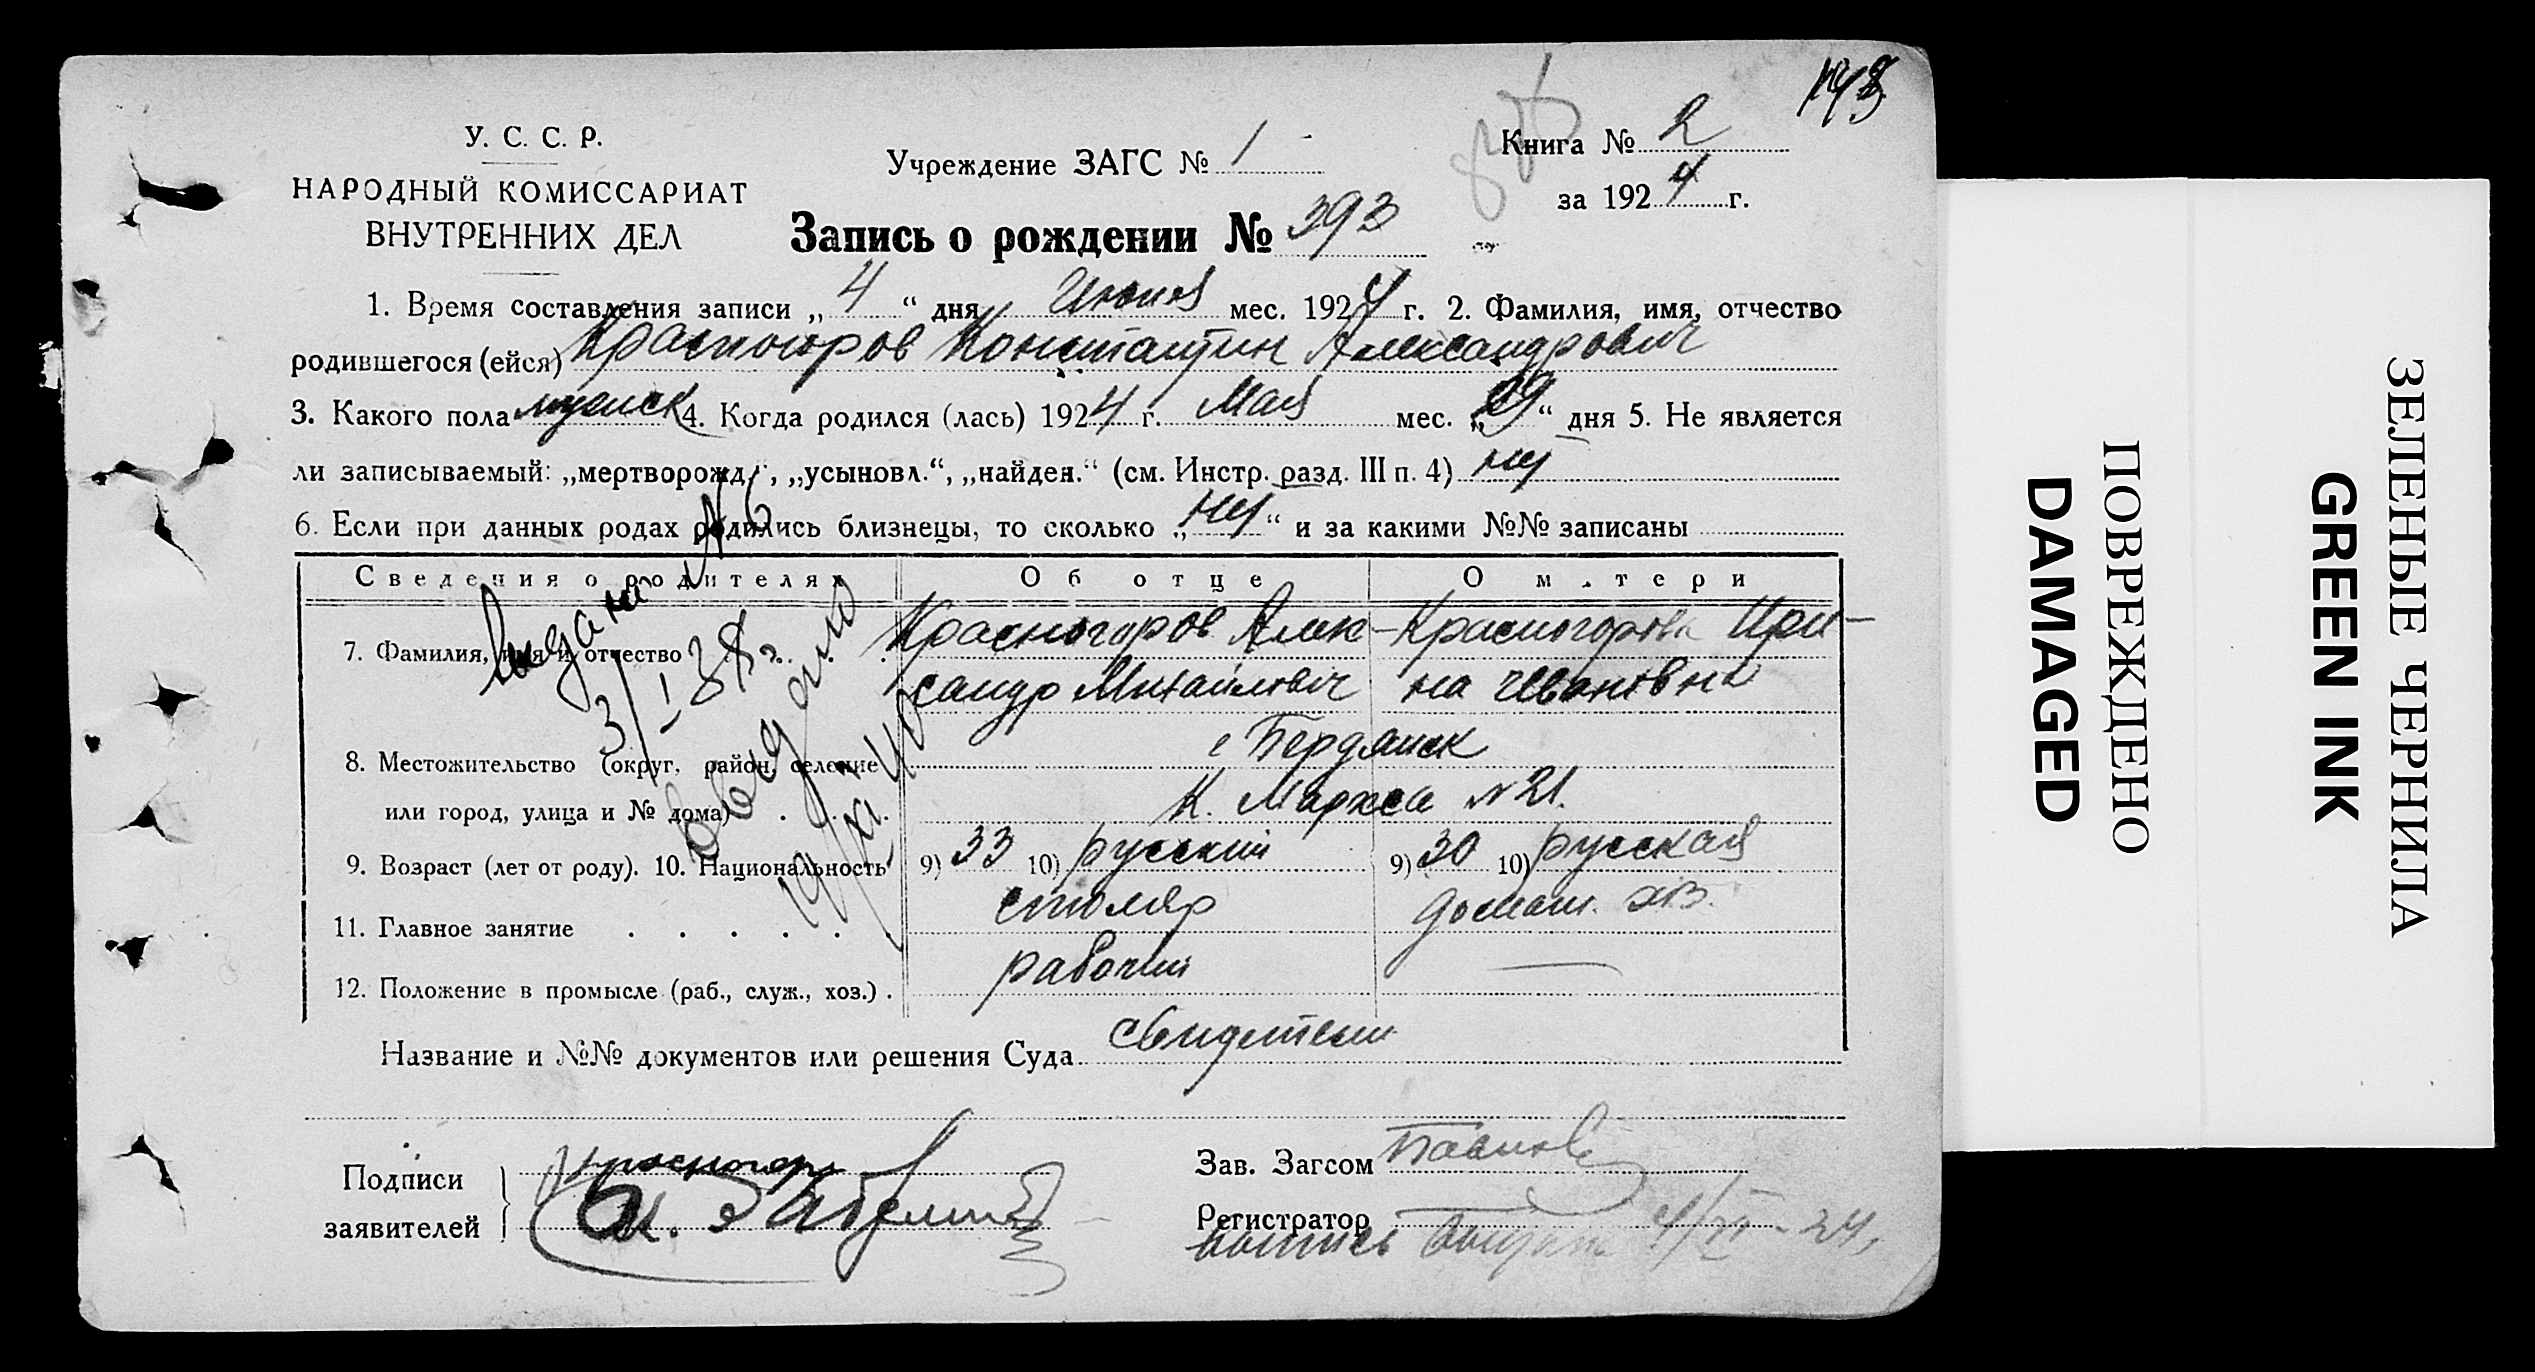 У. С. С. Р.
НАРОДНЫЙ КОМИССАРИАТ
ВНУТРЕННИХ ДЕЛ
Учреждение ЗАГС № 1
Книга № 2
за 1924 г.
Запись о рождении № 393
1. Время составления записи „4“ дня Июня мес. 1924 г. 2. Фамилия, имя, отчество
родившегося (ейся) Красногоров Константин Александрович
3. Какого пола мужск 4. Когда родился (лась) 1924 г. Мая мес. „29“ дня 5. Не является
ли записываемый: „мертворожд.“, „усыновл.“, „найден.“ (см. Инстр. разд. III п. 4) нет
6. Если при данных родах родились близнецы, то сколько „нет“ и за какими №№ записаны
Сведения о родителях Об отце О матери
7. Фамилия, имя и отчество Красногоров Алек- Красногорова Ири-
сандр Михайлович на Ивановна
8. Местожительство (округ, район, селение г Бердянск
или город, улица и № дома) К. Маркса №21.
9. Возраст (лет от роду). 10. Национальность 9) 33 10) русский 9) 30 10) русская
11. Главное занятие столяр домаш. хоз.
12. Положение в промысле (раб., служ., хоз.) рабочий —
3/I-38г.
Название и №№ документов или решения Суда свидетели
Подписи
заявителей
Зав. Загсом
Регистратор
4/VI-24
ПОВРЕЖДЕНО
DAMAGED
ЗЕЛЕНЫЕ ЧЕРНИЛА
GREEN INK